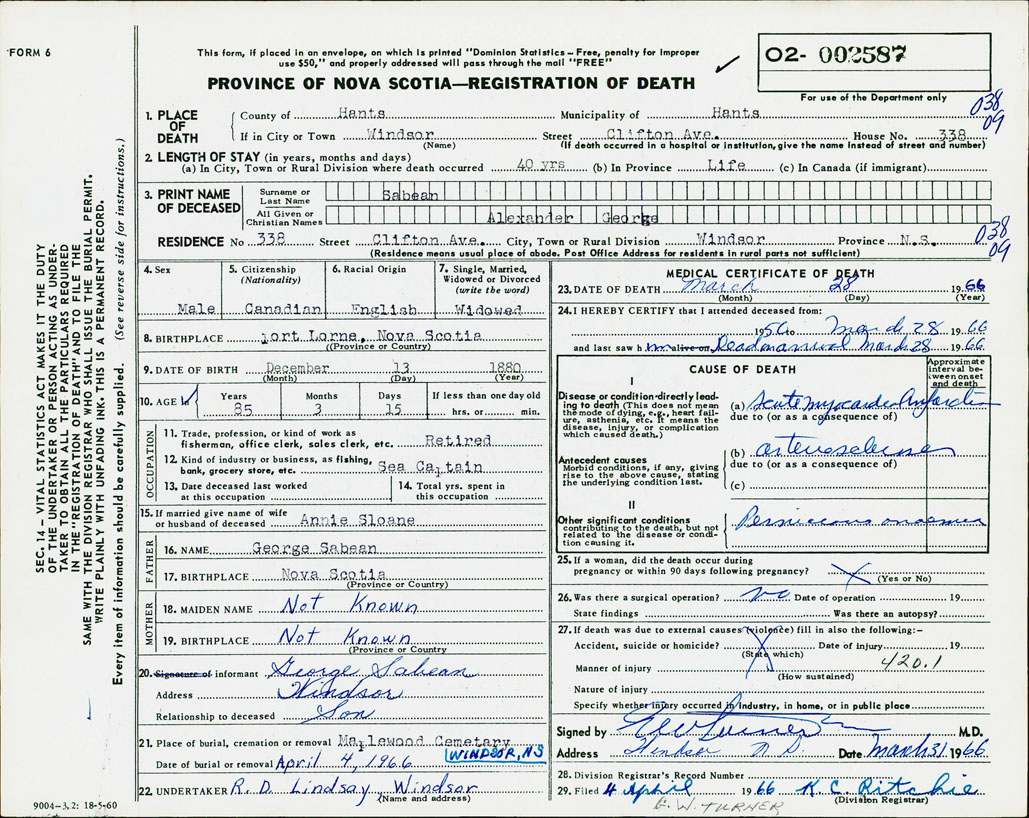 FORM 6
This form, if placed in an envelope, on which is printed "Dominion Statistics – Free, penalty for improper
use $50," and properly addressed will pass through the mail "FREE"
PROVINCE OF NOVA SCOTIA—REGISTRATION OF DEATH
02- 002587
For use of the Department only
038
09
1. PLACE OF DEATH
County of Hants Municipality of Hants
If in City or Town Windsor Street Clifton Ave. House No. 338
(Name) (If death occurred in a hospital or institution, give the name instead of street and number)
2. LENGTH OF STAY (in years, months and days)
(a) In City, Town or Rural Division where death occurred 40 yrs (b) In Province Life (c) In Canada (if immigrant)
3. PRINT NAME OF DECEASED
Surname or Last Name Sabean
All Given or Christian Names Alexander George
RESIDENCE No 338 Street Clifton Ave. City, Town or Rural Division Windsor Province N.S.
038
09
(Residence means usual place of abode. Post Office Address for residents in rural parts not sufficient)
4. Sex
Male
5. Citizenship
(Nationality)
Canadian
6. Racial Origin
English
7. Single, Married,
Widowed or Divorced
(write the word)
Widowed
8. BIRTHPLACE Port Lorne, Nova Scotia
(Province or Country)
9. DATE OF BIRTH December 13 1880
(Month) (Day) (Year)
10. AGE
Years Months Days If less than one day old
85 3 15 hrs. or min.
OCCUPATION
11. Trade, profession, or kind of work as
fisherman, office clerk, sales clerk, etc. Retired
12. Kind of industry or business, as fishing,
bank, grocery store, etc. Sea Captain
13. Date deceased last worked
at this occupation
14. Total yrs. spent in
this occupation
15. If married give name of wife
or husband of deceased Annie Sloane
FATHER
16. NAME George Sabean
17. BIRTHPLACE Nova Scotia
(Province or Country)
MOTHER
18. MAIDEN NAME Not Known
19. BIRTHPLACE Not Known
(Province or Country
20. Signature of informant George Sabean
Address Windsor
Relationship to deceased Son
21. Place of burial, cremation or removal Maplewood Cemetary
WINDSOR, NS
Date of burial or removal April 4, 1966
22. UNDERTAKER R. D. Lindsay Windsor
(Name and address)
MEDICAL CERTIFICATE OF DEATH
23. DATE OF DEATH March 28 1966
(Month) (Day) (Year)
24. I HEREBY CERTIFY that I attended deceased from:
1956 to March 28 1966
and last saw him alive on Dead on arrival March 28 1966
CAUSE OF DEATH
Approximate
interval be-
tween onset
and death
I
Disease or condition directly lead-
ing to death (This does not mean
the mode of dying, e.g., heart fail-
ure, asthenia, etc. It means the
disease, injury, or complication
which caused death.)
(a) Acute myocardia Infarction
due to (or as a consequence of)
Antecedent causes
Morbid conditions, if any, giving
rise to the above cause, stating
the underlying condition last.
(b) arteriosclerosis
due to (or as a consequence of)
(c)
II
Other significant conditions
contributing to the death, but not
related to the disease or condi-
tion causing it.
Pernicious anaemia
25. If a woman, did the death occur during
pregnancy or within 90 days following pregnancy? (Yes or No)
26. Was there a surgical operation? no Date of operation 19
State findings Was there an autopsy?
27. If death was due to external causes (violence) fill in also the following:–
Accident, suicide or homicide? Date of injury 19
(State which) 420.1
Manner of injury
(How sustained)
Nature of injury
Specify whether injury occurred in industry, in home, or in public place
Signed by E W Turner M.D.
Address Windsor N.S. Date March 31 1966
28. Division Registrar's Record Number
29. Filed 4 April 1966 K. C. Ritchie
(Division Registrar)
E. W. TURNER
9004-3,2: 18-5-60
SEC. 14 – VITAL STATISTICS ACT MAKES IT THE DUTY
OF THE UNDERTAKER OR PERSON ACTING AS UNDER-
TAKER TO OBTAIN ALL THE PARTICULARS REQUIRED
IN THE "REGISTRATION OF DEATH" AND TO FILE THE
SAME WITH THE DIVISION REGISTRAR WHO SHALL ISSUE THE BURIAL PERMIT.
WRITE PLAINLY WITH UNFADING INK. THIS IS A PERMANENT RECORD.
Every item of information should be carefully supplied. (See reverse side for instructions.)